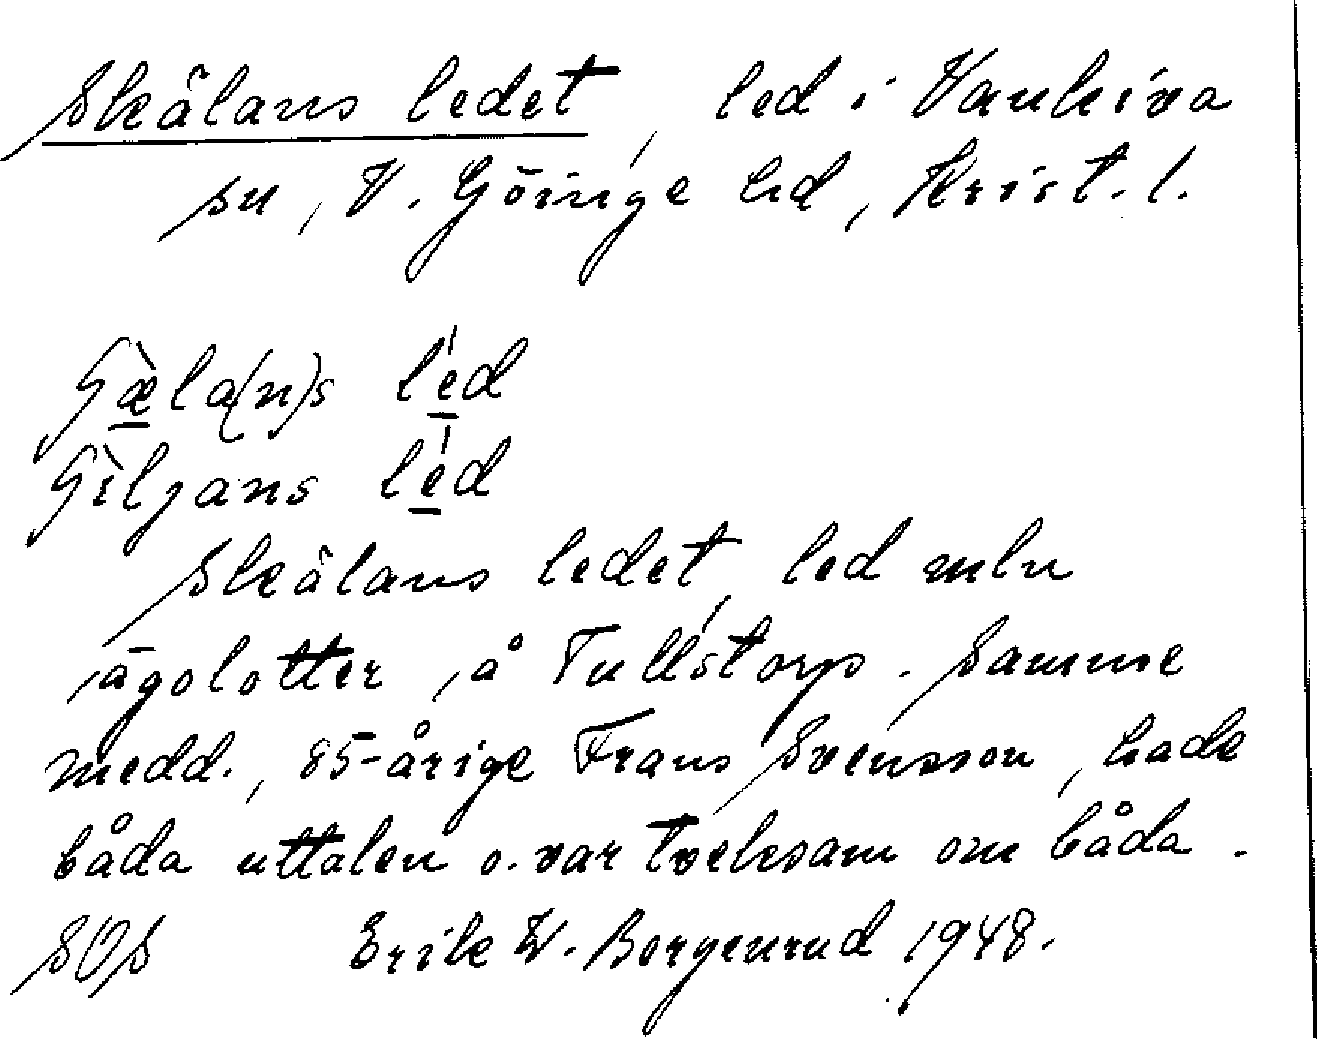 Skälans ledet, led i Vankiva
sn, V. Göinge hd, Krist. l.
Gæ̀la(n)s léd
Gìljans léd
Skälans ledet, led mln
ägolotter, å Tullstorp. Samme
medd., 85-årige Frans Svensson, hade
båda uttalen o. var tveksam om båda.
SOS Erik W. Borgenrud 1948.